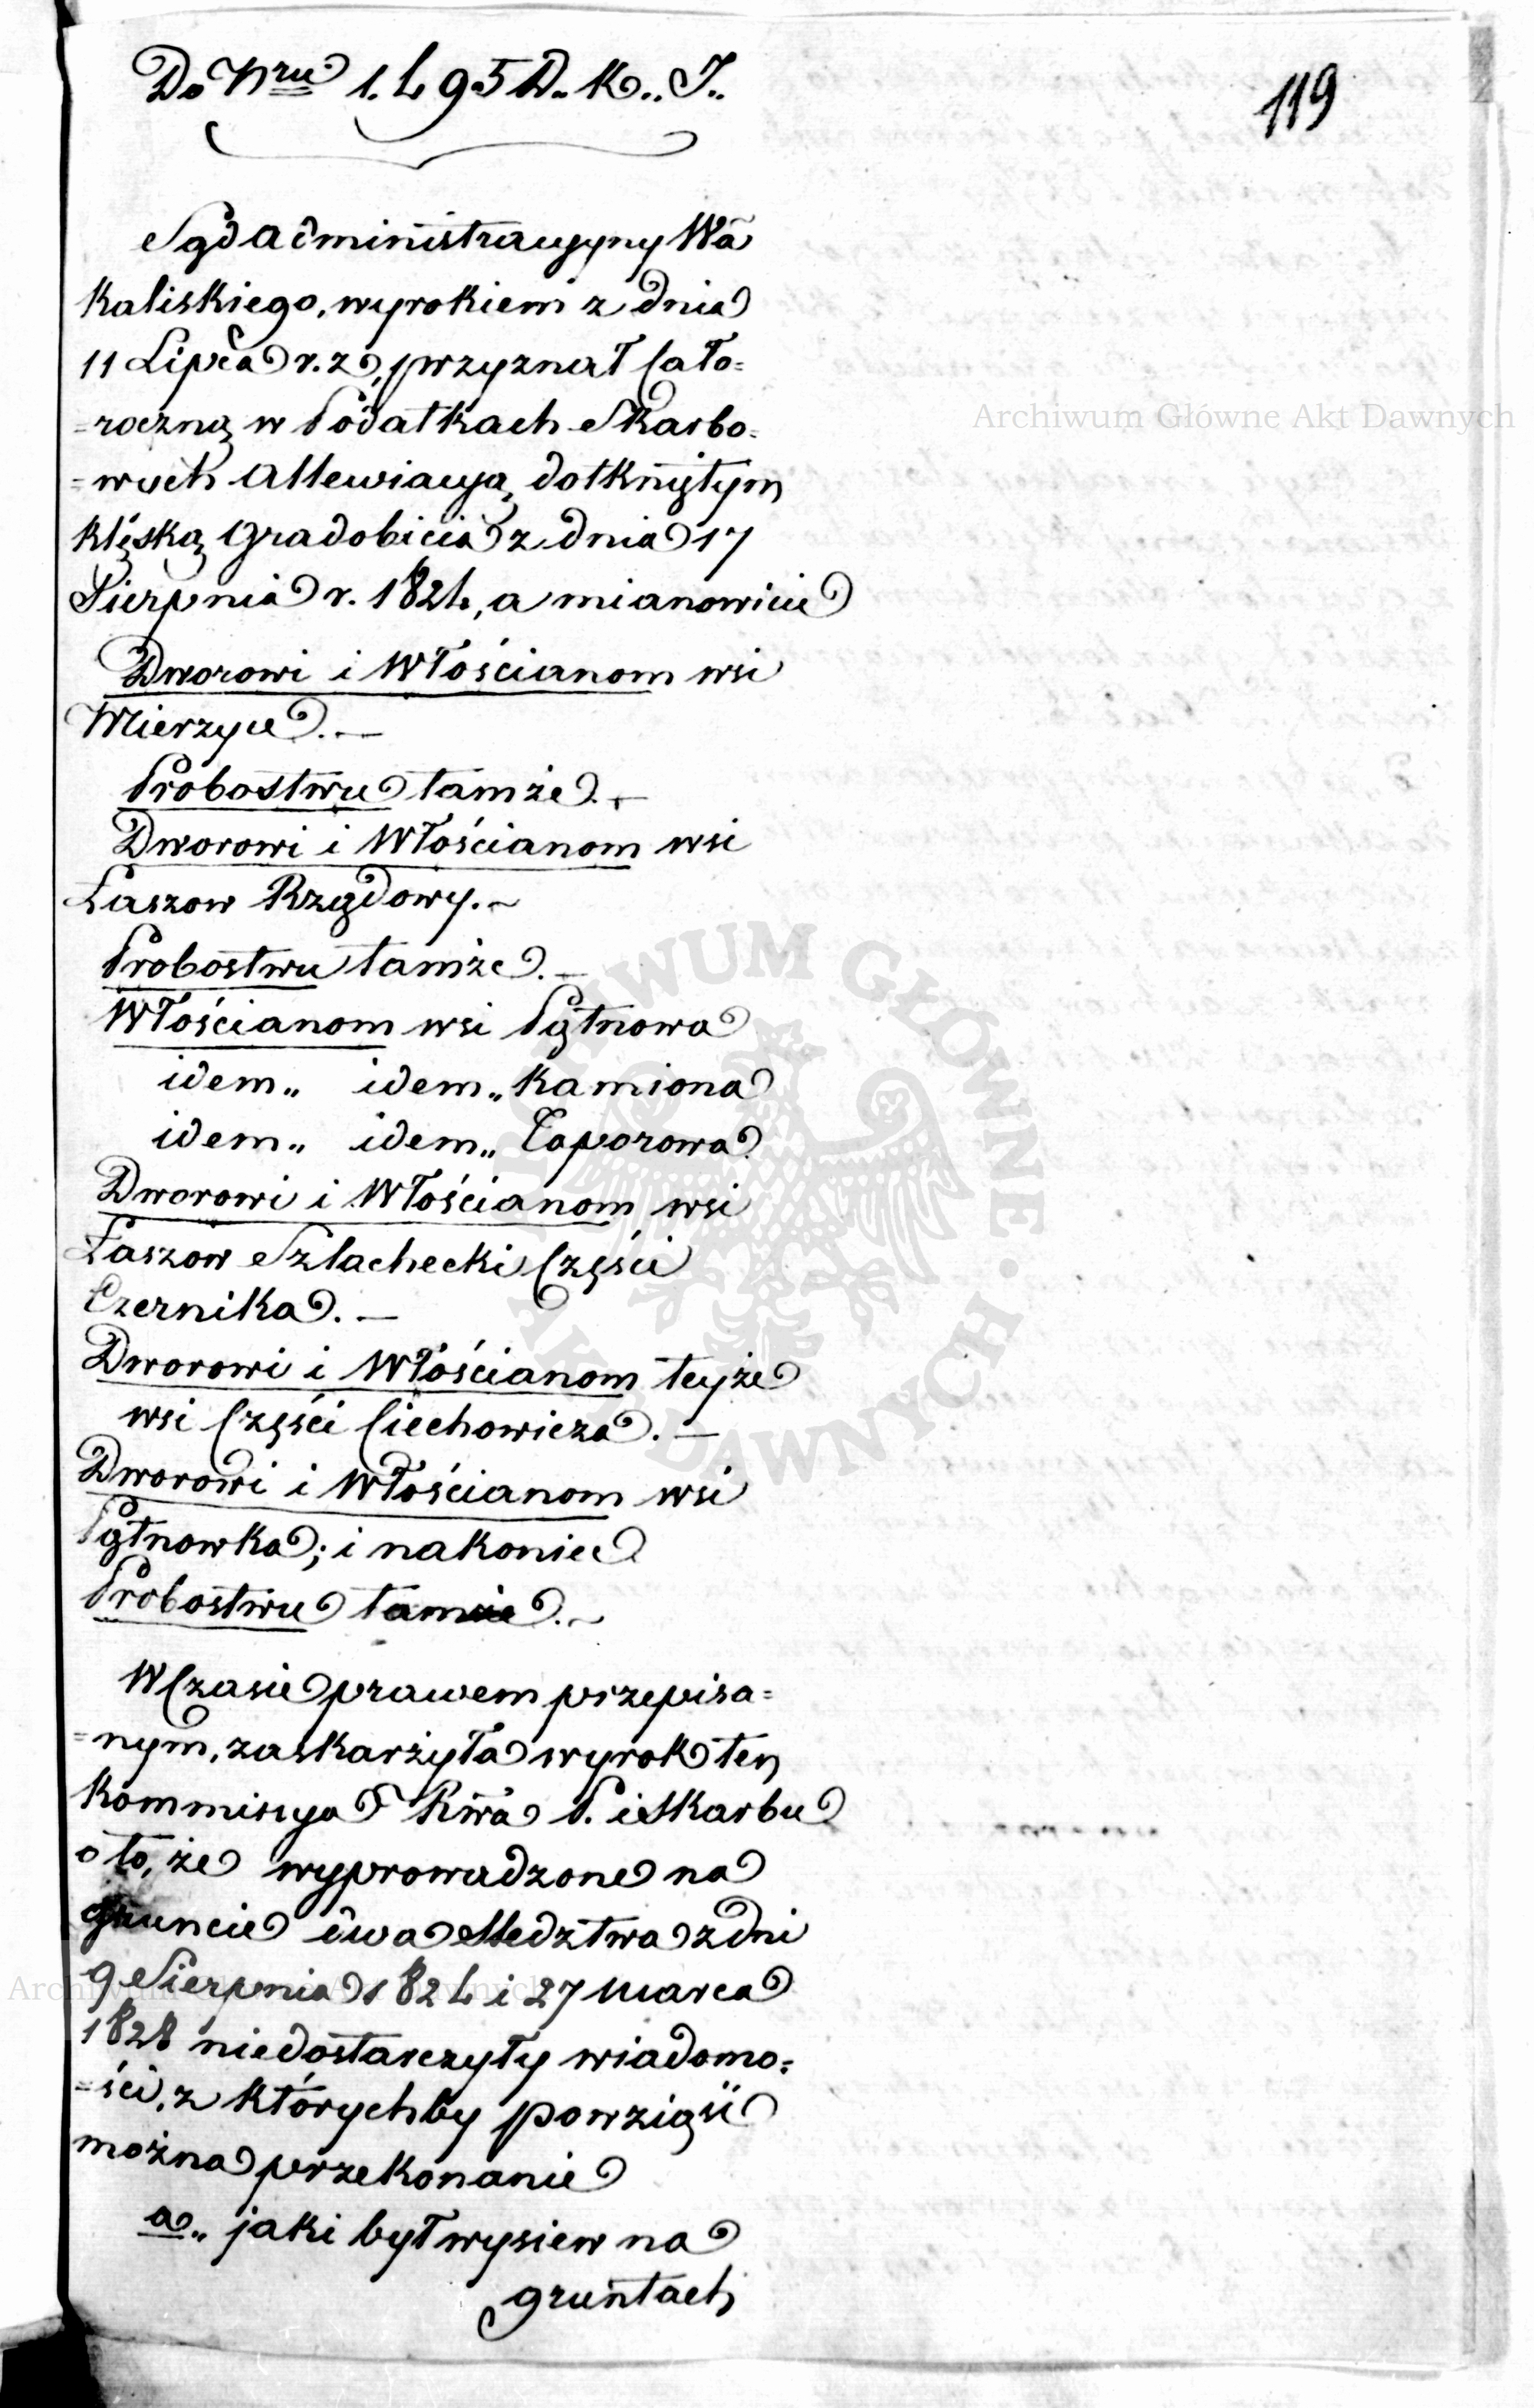 Do Nru 1.495 D. K.. J..
119
Sąd administracyjny Wa
Kaliskiego, wyrokiem z dnia
11 Lipca r. z, przyznał Cało-
=roczną w Podatkach Skarbo=
=wych Allewiacyą, dotkniętym
klęską Gradobicia z dnia 17
Sierpnia r. 1824, a mianowicie
Dworowi i Włościanom wsi
Mierzyce. —
Probostwu tamże. —
Dworowi i Włościanom wsi
Łaszow Rządowy. —
Probostwu tamże. —
Włościanom wsi Pątnowa
idem „ idem „ Kamiona
idem „ idem „ Taporowa
Dworowi i Włościanom wsi
Łaszow Szlachecki Części
Czernika. —
Dworowi i Włościanom teyże
wsi Części Ciechowicza. —
Dworowi i Włościanom wsi
Pątnowka; i nakoniec
Probostwu tamże. —
W Czasie prawem przepisa=
=nym, zaskarżyła wyrok ten
Kommissya Rwa P. i Skarbu
o to, że wyprowadzone na
gruncie dwa Sledztwa z dni
9 Sierpnia 1824 i 27 Marca
1828 niedostarczyły wiadomo=
=ści, z którychby powziąść
można przekonanie
a „ jaki był wysiew na
gruntach
Archiwum Główne Akt Dawnych
ARCHIWUM GŁÓWNE AKT DAWNYCH